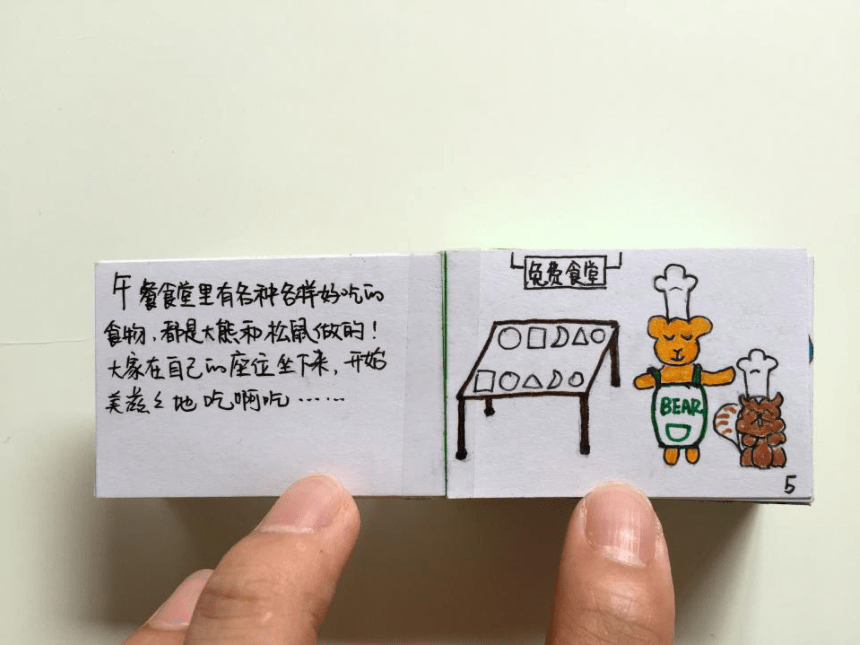 午餐食堂里有各种各样好吃的
食物，都是大熊和松鼠做的！
大家在自己的座位坐下来，开始
美滋々地吃啊吃……
免费食堂
BEAR
5